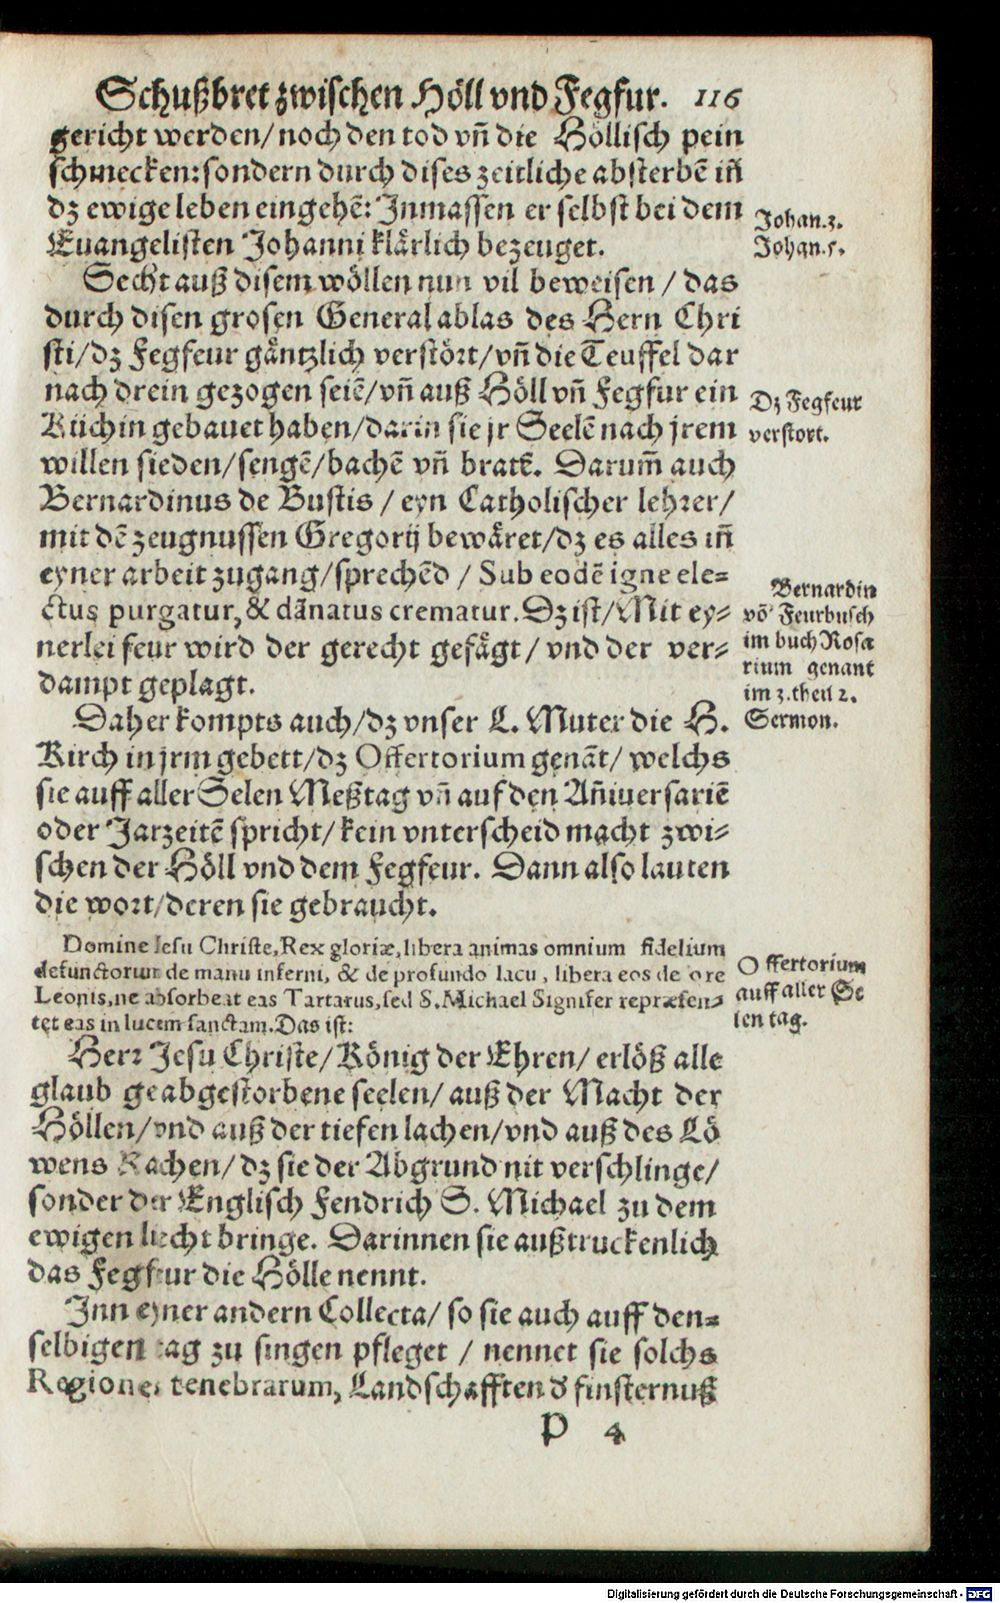 Schußbret zwischen Höll vnd Fegfur. 116
gericht werden/ noch den tod vñ die Höllisch pein
schmecken: sondern durch dises zeitliche absterbẽ iñ
dz ewige leben eingehẽ: Inmassen er selbst bei dem
Euangelisten Johanni klärlich bezeuget.
Johan.3.
Johan.5.
Secht auß disem wöllen nun vil beweisen / das
durch disen grosen General ablas des Hern Chri
sti/ dz Fegfeur gäntzlich verstört/ vñ die Teuffel dar
nach drein gezogen seiẽ/ vñ auß Höll vñ Fegfur ein
Küchin gebauet haben/ darin sie jr Seelẽ nach jrem
willen sieden/ sengẽ/ bachẽ vñ bratẽ. Darum̃ auch
Bernardinus de Bustis / eyn Catholischer lehrer/
mit dẽ zeugnussen Gregorij bewäret/ dz es alles iñ
eyner arbeit zugang/ sprechẽd / Sub eodẽ igne ele=
ctus purgatur, & dãnatus crematur. Dz ist/ Mit ey=
nerlei feur wird der gerecht gefägt/ vnd der ver=
dampt geplagt.
Dz Fegfeur
verstort.
Bernardin
võ Feurbusch
im buch Rosa
rium genant
im 3. theil 2.
Sermon.
Daher kompts auch/ dz vnser L. Muter die H.
Kirch in jrm gebett/ dz Offertorium genãt/ welchs
sie auff aller Selen Meßtag vñ auf den Añiuersariẽ
oder Jarzeitẽ spricht/ kein vnterscheid macht zwi=
schen der Höll vnd dem Fegfeur. Dann also lauten
die wort/ deren sie gebraucht.
Domine Iesu Christe, Rex gloriæ, libera animas omnium fidelium
defunctorum de manu inferni, & de profundo lacu, libera eos de ore
Leonis, ne absorbeat eas Tartarus, sed S. Michael Signifer repræsen=
tet eas in lucem sanctam. Das ist:
Offertorium
auff aller Se
len tag.
Herr Jesu Christe/ König der Ehren/ erlöß alle
glaub geabgestorbene seelen/ auß der Macht der
Höllen/ vnd auß der tiefen lachen/ vnd auß des Lö
wens Rachen/ dz sie der Abgrund nit verschlinge/
sonder der Englisch Fendrich S. Michael zu dem
ewigen liecht bringe. Darinnen sie außtruckenlich
das Fegfeur die Hölle nennt.
Inn eyner andern Collecta/ so sie auch auff den=
selbigen tag zu singen pfleget / nennet sie solchs
Regiones tenebrarum, Landschafften d' finsternuß
P 4
Digitalisierung gefördert durch die Deutsche Forschungsgemeinschaft - DFG